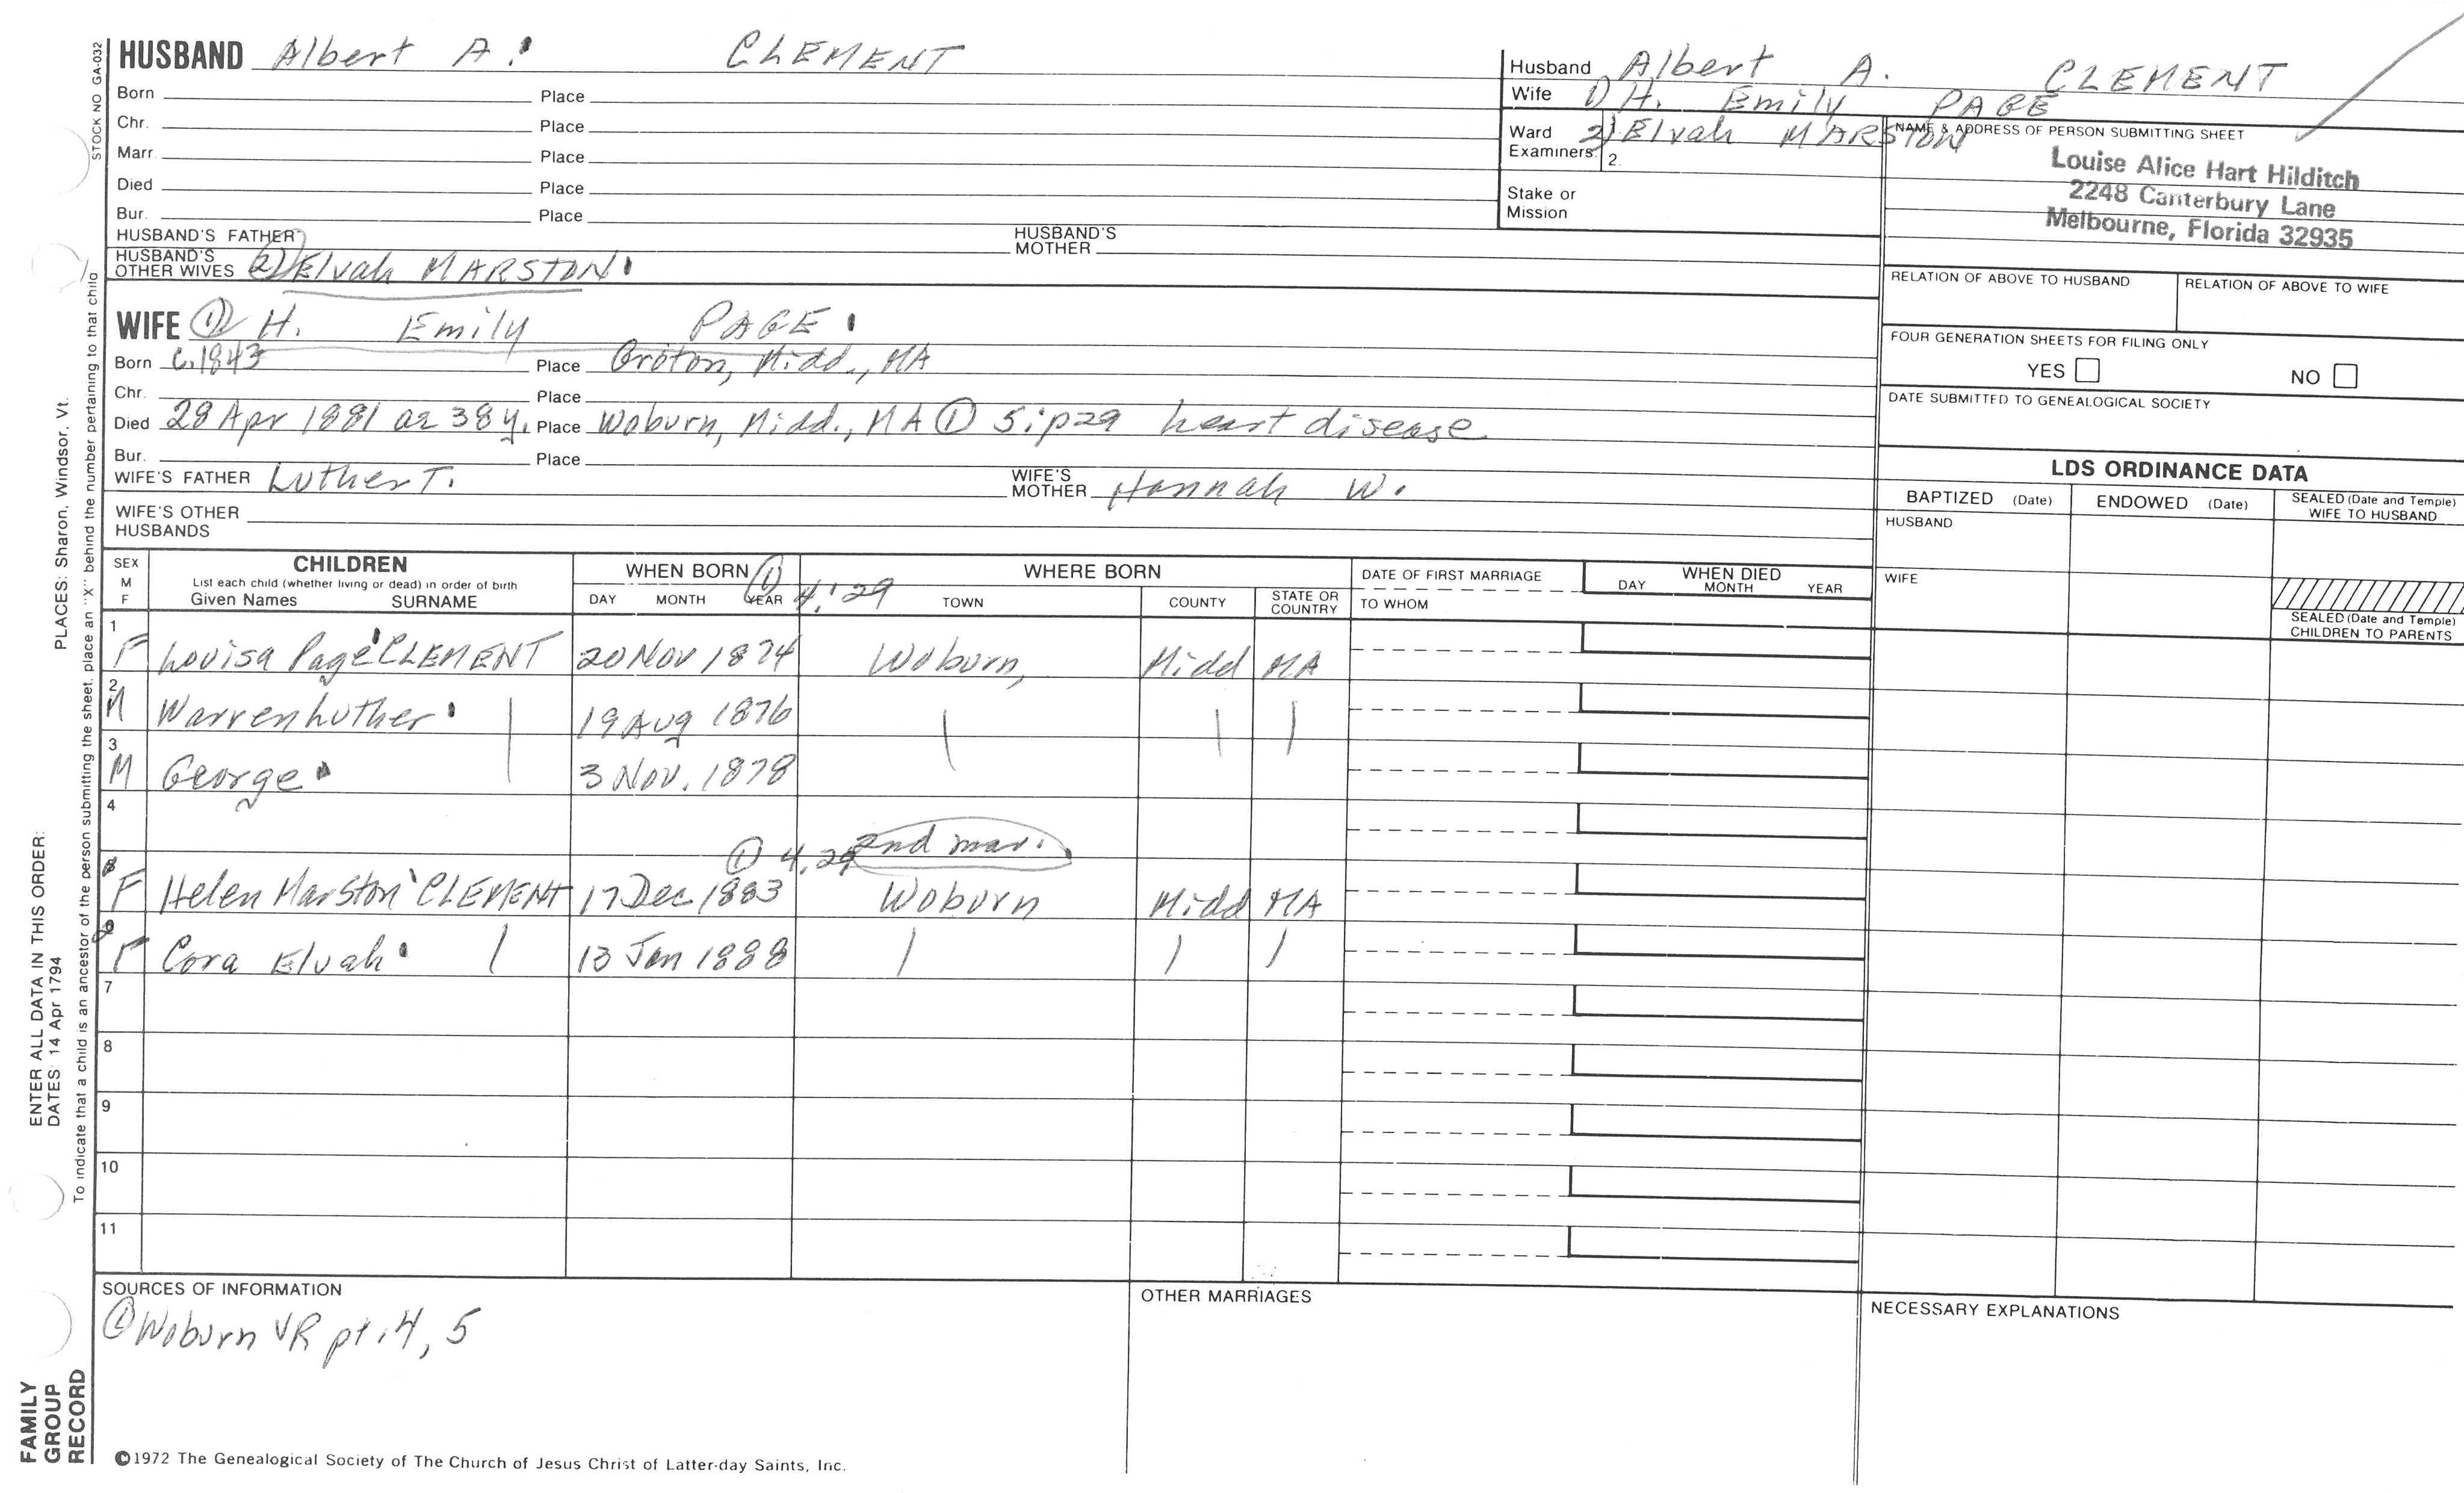 STOCK NO GA-032
HUSBAND Albert A. CLEMENT
Born Place
Chr. Place
Marr. Place
Died Place
Bur. Place
HUSBAND'S FATHER HUSBAND'S MOTHER
HUSBAND'S OTHER WIVES (2) Elvah MARSTON
Husband Albert A. CLEMENT
Wife 1) H. Emily PAGE
Ward 2) Elvah MARSTON
Examiners: 2.
Stake or
Mission
NAME & ADDRESS OF PERSON SUBMITTING SHEET
Louise Alice Hart Hilditch
2248 Canterbury Lane
Melbourne, Florida 32935
RELATION OF ABOVE TO HUSBAND RELATION OF ABOVE TO WIFE
FOUR GENERATION SHEETS FOR FILING ONLY
YES NO
DATE SUBMITTED TO GENEALOGICAL SOCIETY
WIFE (1) H. Emily PAGE
Born c.1843 Place Groton, Midd., MA
Chr. Place
Died 28 Apr 1881 ae 38 y. Place Woburn, Midd., MA (1) 5:p29 heart disease
Bur. Place
WIFE'S FATHER Luther T. WIFE'S MOTHER Hannah W.
WIFE'S OTHER
HUSBANDS
LDS ORDINANCE DATA
BAPTIZED (Date) ENDOWED (Date) SEALED (Date and Temple) WIFE TO HUSBAND
HUSBAND
WIFE
SEALED (Date and Temple)
CHILDREN TO PARENTS
SEX M F CHILDREN WHEN BORN (1) 4:29 WHERE BORN DATE OF FIRST MARRIAGE WHEN DIED
List each child (whether living or dead) in order of birth
Given Names SURNAME DAY MONTH YEAR TOWN COUNTY STATE OR COUNTRY TO WHOM DAY MONTH YEAR
1 F Louisa Page CLEMENT 20 Nov 1874 Woburn, Midd MA
2 M Warren Luther | 19 Aug 1876 | | |
3 M George 3 Nov. 1878
4
(1) 4,29 2nd mar.
F Helen Marston CLEMENT 17 Dec 1883 Woburn Midd MA
F Cora Elvah | 13 Jan 1888 | | |
7
8
9
10
11
SOURCES OF INFORMATION
(1) Woburn VR pt. 4, 5
OTHER MARRIAGES
NECESSARY EXPLANATIONS
©1972 The Genealogical Society of The Church of Jesus Christ of Latter-day Saints, Inc.
FAMILY
GROUP
RECORD
ENTER ALL DATA IN THIS ORDER:
DATES: 14 Apr 1794
PLACES: Sharon, Windsor, Vt.
To indicate that a child is an ancestor of the person submitting the sheet, place an "X" behind the number pertaining to that child